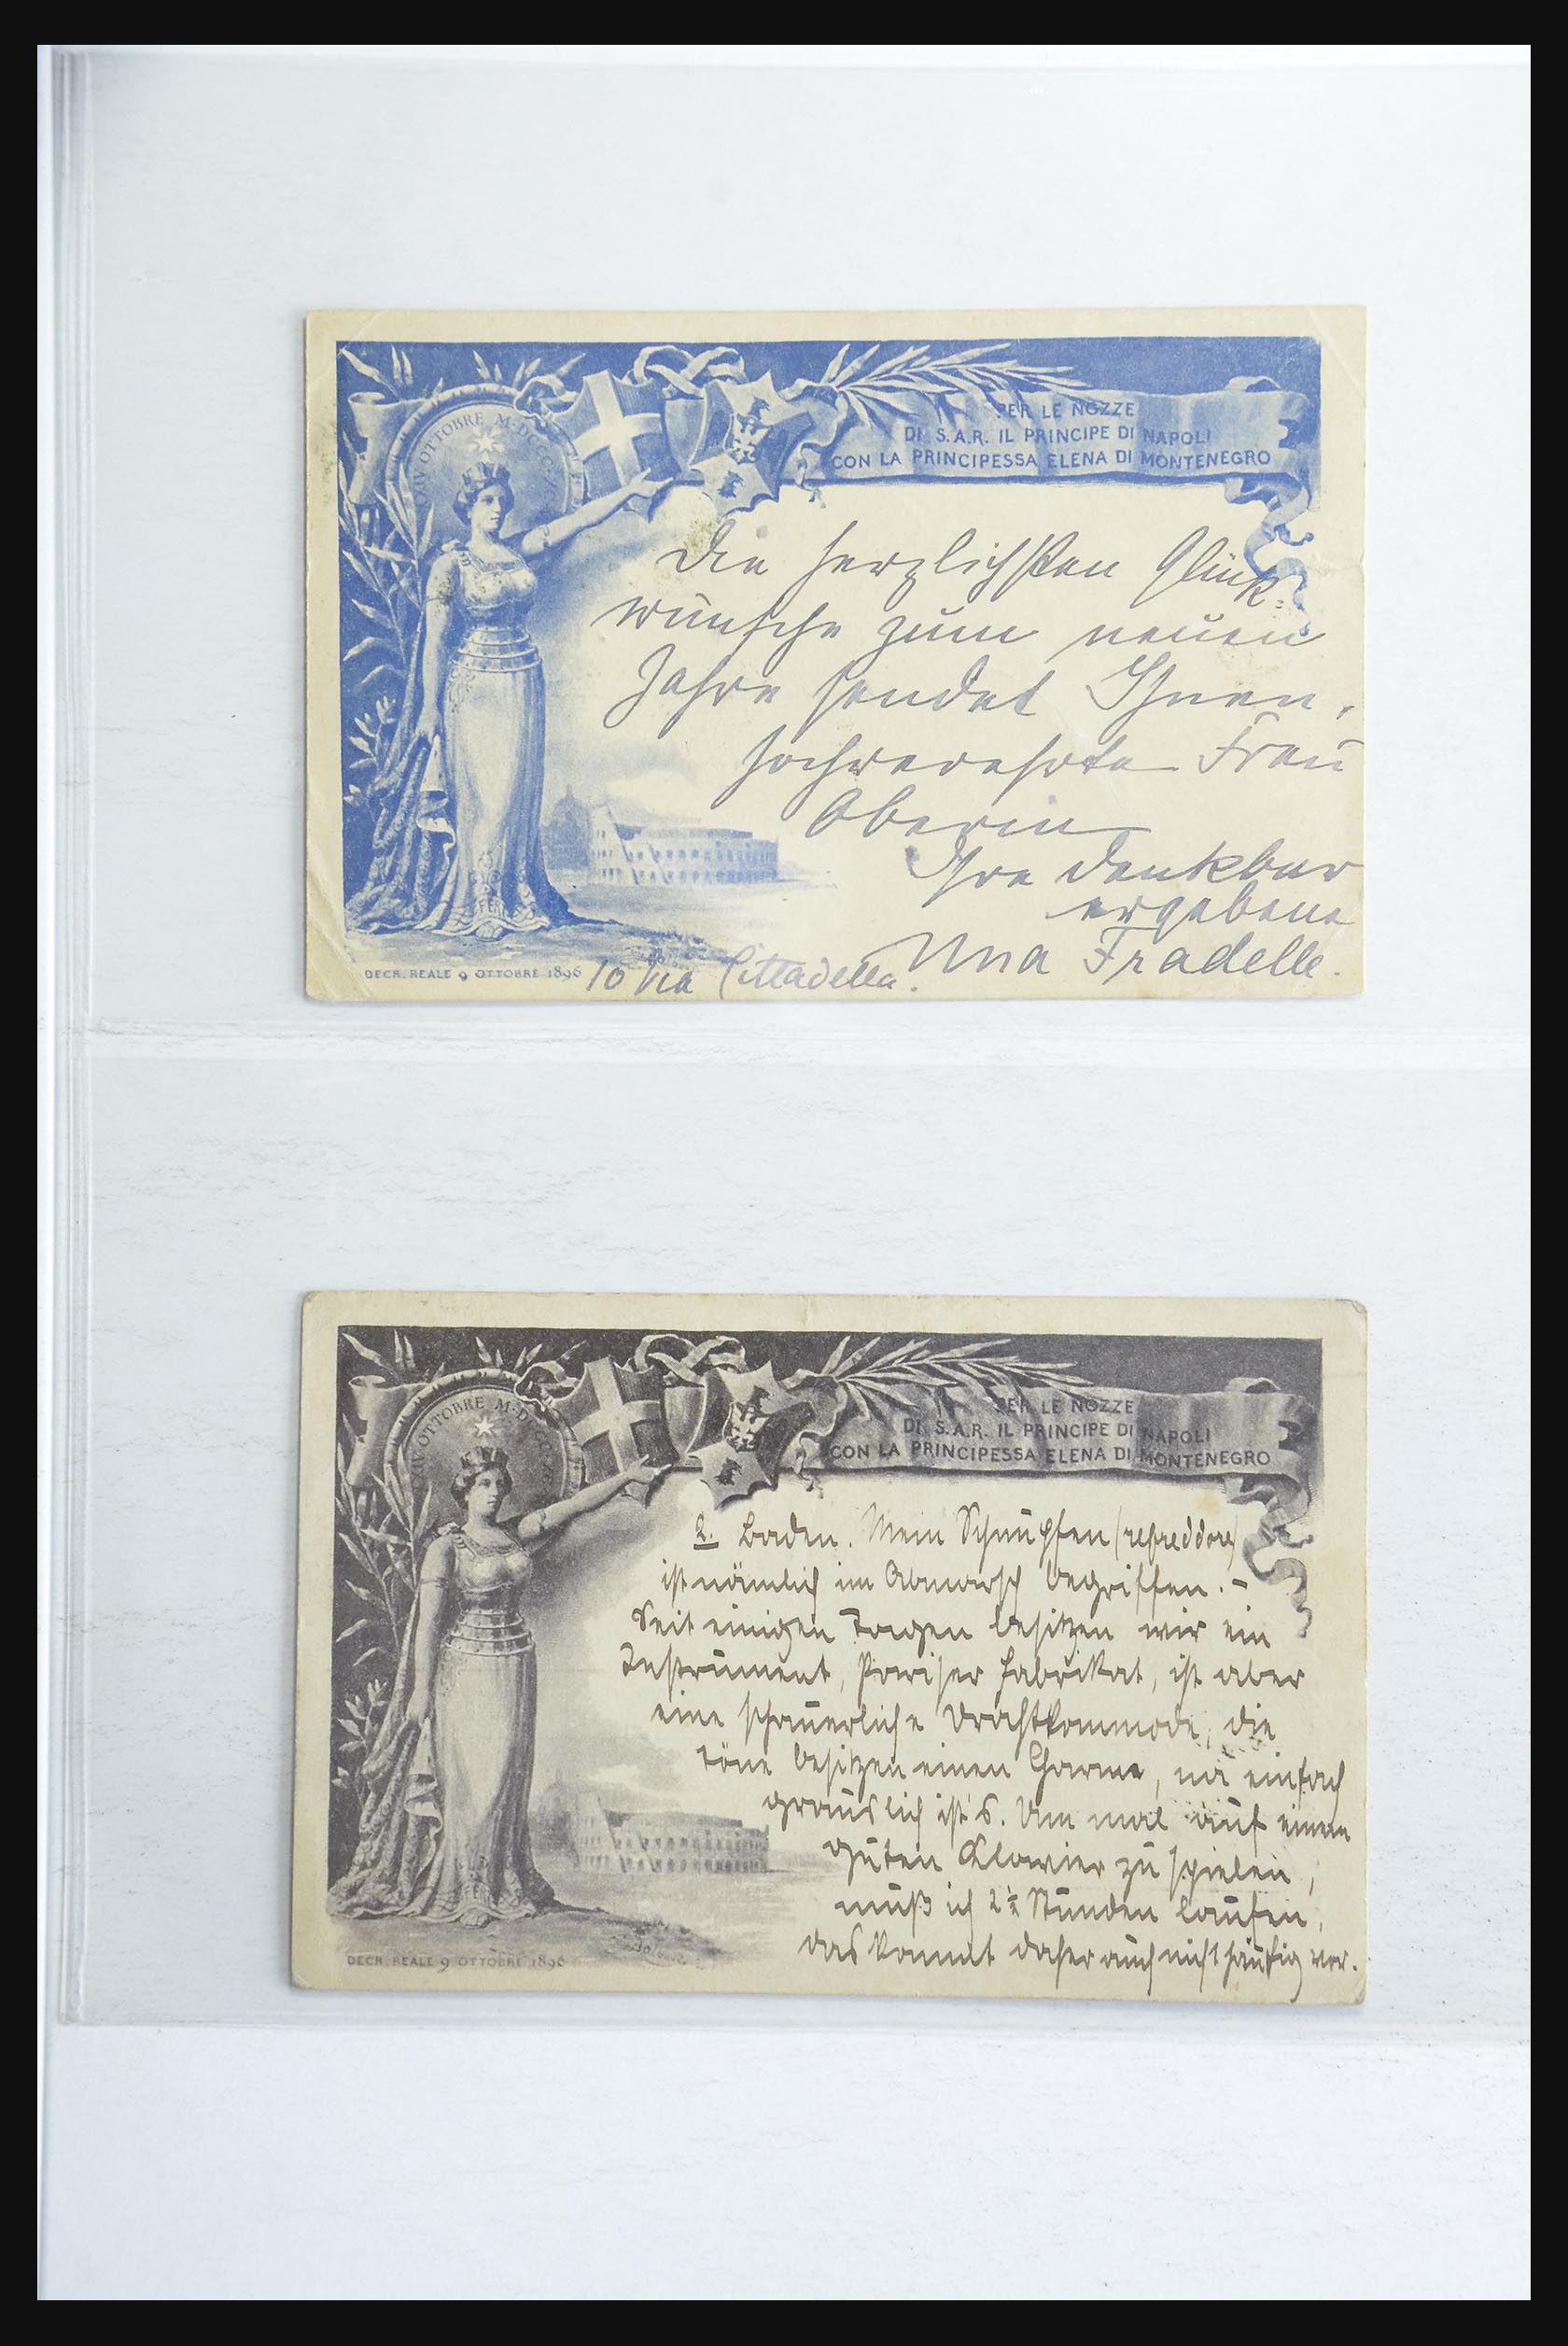 XXIV OTTOBRE M·DCCC·XC
PER LE NOZZE
DI S.A.R. IL PRINCIPE DI NAPOLI
CON LA PRINCIPESSA ELENA DI MONTENEGRO
Die herzlichsten Glück-
wünsche zum neuen
Jahre sendet Ihnen,
hochverehrte Frau
Oberin
Ihre dankbar
ergebene
Una Fradelle.
10 Via Cittadella.
FERT
DECR. REALE 9 OTTOBRE 1896
XXIV OTTOBRE M·DCCC·XC
PER LE NOZZE
DI S.A.R. IL PRINCIPE DI NAPOLI
CON LA PRINCIPESSA ELENA DI MONTENEGRO
2. Baden. Mein Schnupfen (refreddore)
ist nämlich im Abmarsch begriffen. -
Seit einigen Tagen besitzen wir ein
Instrument, Pariser Fabrikat, ist aber
eine schauerliche Drahtkommode, die
Töne besitzen einen Charme, na einfach
grauslich ist's. Um mal auf einem
guten Klavier zu spielen,
muß ich 2½ Stunden laufen,
das kommt daher auch nicht häufig vor.
FERT
DECR. REALE 9 OTTOBRE 1896